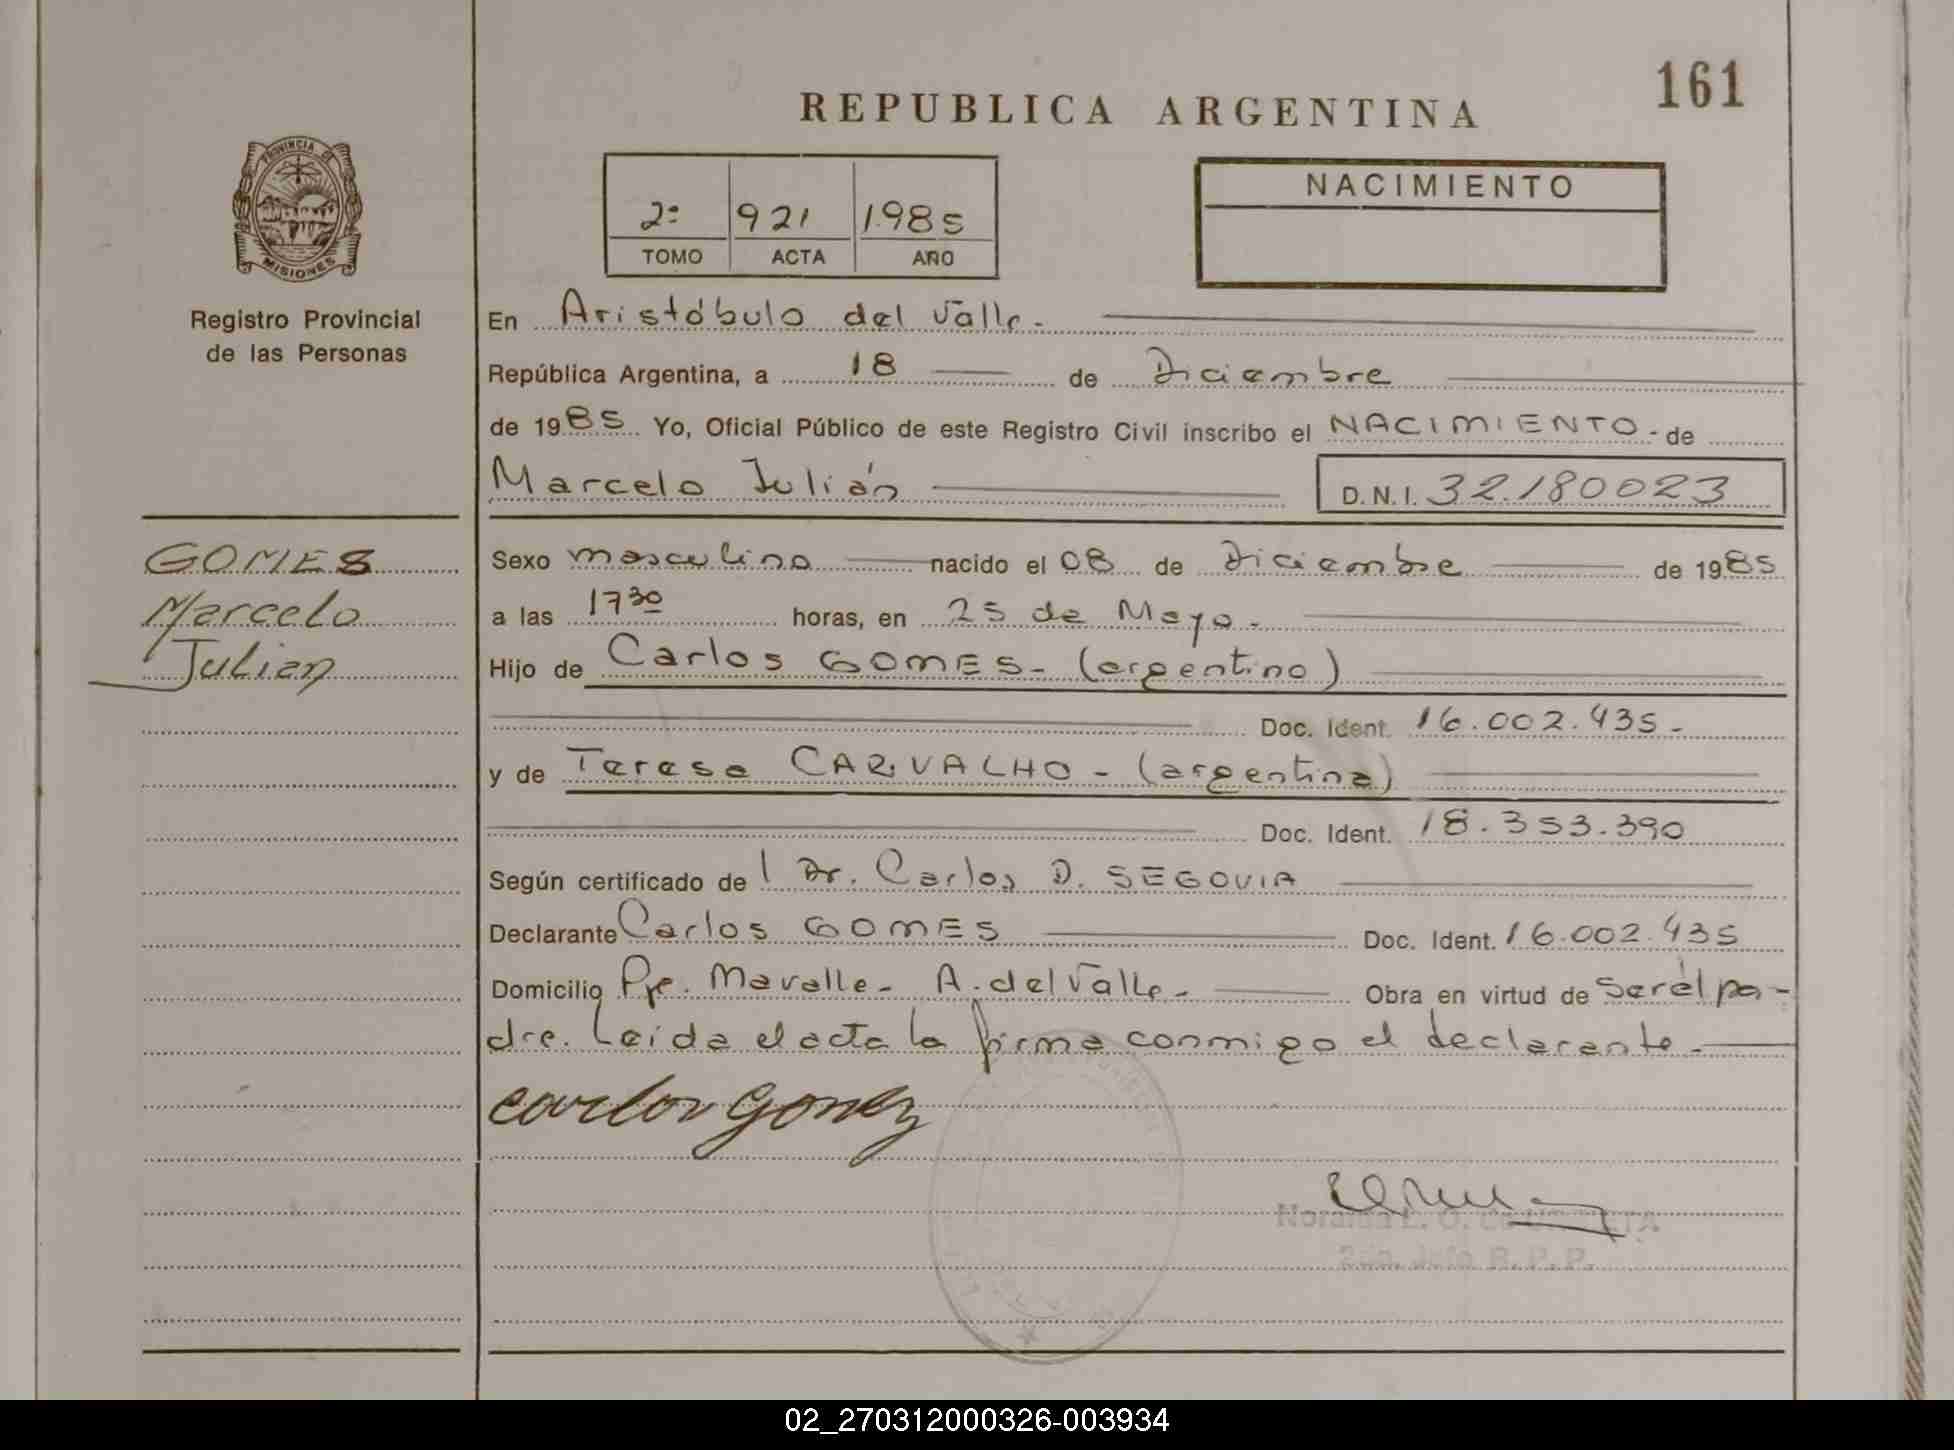 161
REPUBLICA ARGENTINA
PROVINCIA DE
MISIONES
2º 921 1985
TOMO ACTA AÑO
NACIMIENTO
Registro Provincial
de las Personas
En Aristóbulo del Valle.
República Argentina, a 18 de Diciembre
de 1985 Yo, Oficial Público de este Registro Civil inscribo el NACIMIENTO - de
Marcelo Julián D.N.I. 32.180023
GOMES
Marcelo
Julian
Sexo masculino nacido el 08 de Diciembre de 1985
a las 17 30 horas, en 25 de Mayo.
Hijo de Carlos GOMES- (argentino)
Doc. Ident. 16.002.435-
y de Teresa CARVALHO - (argentina)
Doc. Ident. 18.353.390
Según certificado de l Dr. Carlos D. SEGOVIA
Declarante Carlos GOMES Doc. Ident. 16.002.435
Domicilio Pje. Mavalle- A. del Valle- Obra en virtud de ser el pa-
dre. Leida el acta la firma conmigo el declarante.
carlos gomez
R. P. P.
02_270312000326-003934